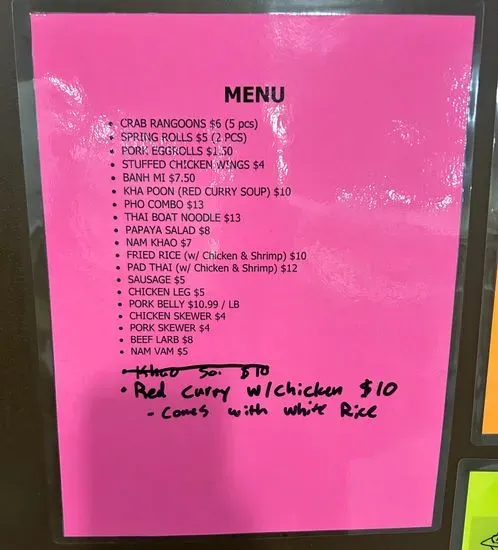 MENU
• CRAB RANGOONS $6 (5 pcs)
• SPRING ROLLS $5 (2 PCS)
• PORK EGGROLLS $1.50
• STUFFED CHICKEN WINGS $4
• BANH MI $7.50
• KHA POON (RED CURRY SOUP) $10
• PHO COMBO $13
• THAI BOAT NOODLE $13
• PAPAYA SALAD $8
• NAM KHAO $7
• FRIED RICE (w/ Chicken & Shrimp) $10
• PAD THAI (w/ Chicken & Shrimp) $12
• SAUSAGE $5
• CHICKEN LEG $5
• PORK BELLY $10.99 / LB
• CHICKEN SKEWER $4
• PORK SKEWER $4
• BEEF LARB $8
• NAM VAM $5
• Khao Soi $10
• Red Curry w/Chicken $10
- Comes with white Rice